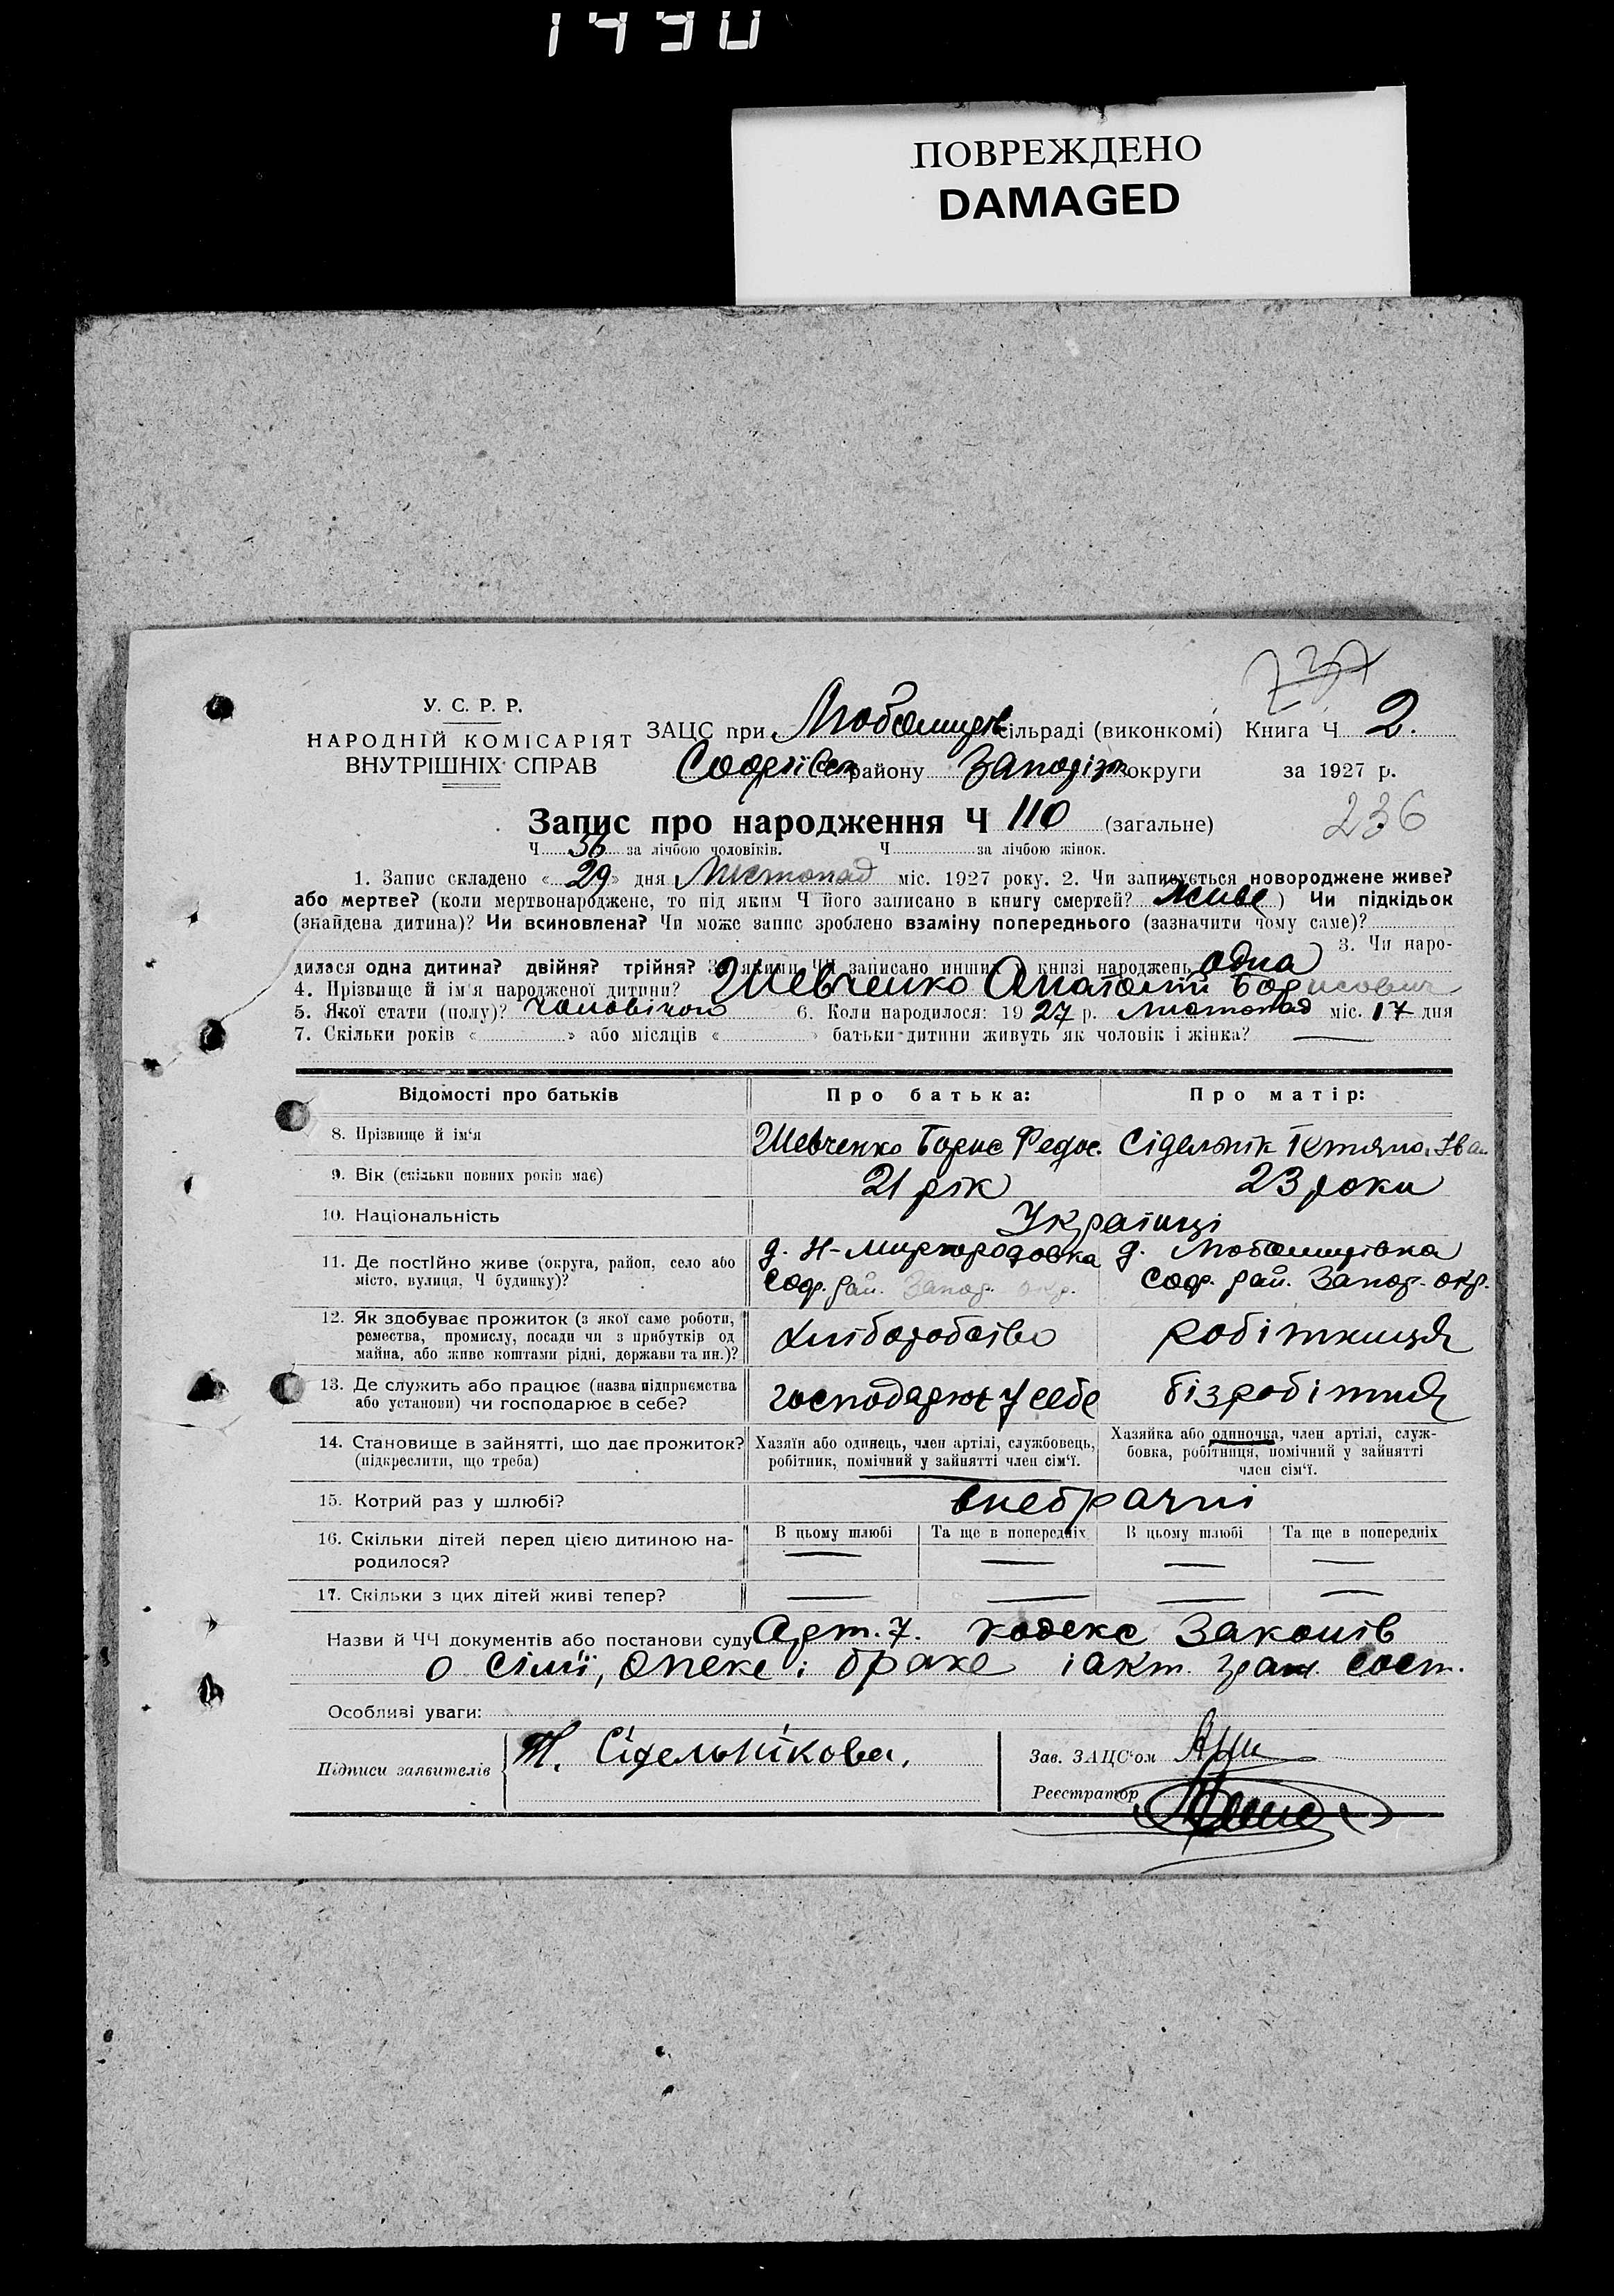 1490
ПОВРЕЖДЕНО
DAMAGED
737
У. С. Р. Р.
НАРОДНІЙ КОМІСАРІЯТ
ВНУТРІШНІХ СПРАВ
ЗАЦС при Любомирів сільраді (виконкомі) Книга Ч 2.
Софіївськ району Запоріз округи за 1927 р.
236
Запис про народження Ч 110 (загальне)
Ч 56 за лічбою чоловіків. Ч за лічбою жінок.
1. Запис складено « 29 » дня Листопад міс. 1927 року. 2. Чи записується новороджене живе?
або мертве? (коли мертвонароджене, то під яким Ч його записано в книгу смертей? живе ) Чи підкідьок
(знайдена дитина)? Чи всиновлена? Чи може запис зроблено взаміну попереднього (зазначити чому саме)?
3. Чи наро-
дилася одна дитина? двійня? трійня? За якими ЧЧ записано инших в книзі народжень одна
4. Прізвище й ім'я народженої дитини? Шевченко Анатолій Борисович
5. Якої стати (полу)? чоловічої 6. Коли народилося: 1927 р. листопад міс. 17 дня
7. Скільки років « » або місяців « » батьки дитини живуть як чоловік і жінка? —
Відомості про батьків Про батька: Про матір:
8. Прізвище й ім'я Шевченко Борис Федос. Сідельнік Тетяна Іван
9. Вік (скільки повних років має) 21 рік 23 роки
10. Національність Українці
11. Де постійно живе (округа, район, село або місто, вулиця, Ч будинку)?
д. Н-Миргородовка
Соф. рай. Запор. окр.
д. Любомирівка
Соф. рай. Запор. окр.
12. Як здобуває прожиток (з якої саме роботи,
ремества, промислу, посади чи з прибутків од
майна, або живе коштами рідні, держави та ин.)?
хліборобство робітниця
13. Де служить або працює (назва підприємства
або установи) чи господарює в себе?
господарює у себе безробітня
14. Становище в зайнятті, що дає прожиток?
(підкреслити, що треба)
Хазяїн або одинець, член артілі, службовець,
робітник, помічний у зайнятті член сім'ї.
Хазяйка або одиночка, член артілі, служ-
бовка, робітниця, помічний у зайнятті
член сім'ї.
15. Котрий раз у шлюбі? внебрачні
16. Скільки дітей перед цією дитиною на-
родилося?
В цьому шлюбі Та ще в попередніх В цьому шлюбі Та ще в попередніх
— — — —
17. Скільки з цих дітей живі тепер? — — — —
Назви й ЧЧ документів або постанови суду Арт. 7. кодекс Законів
о сімї, опеке і браке і акт. граж. сост.
Особливі уваги:
Підписи заявителів Т. Сідельнікова.
Зав. ЗАЦС'ом
Реєстратор